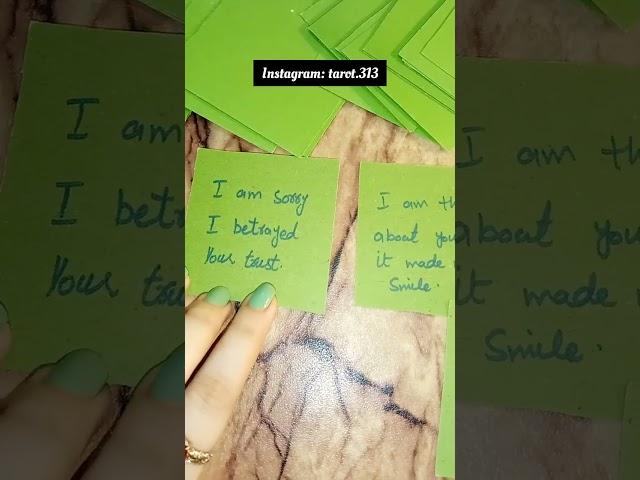 Instagram: tarot.313
I am sorry
I betrayed
Your trust.
I am th
about you
it made
Smile.